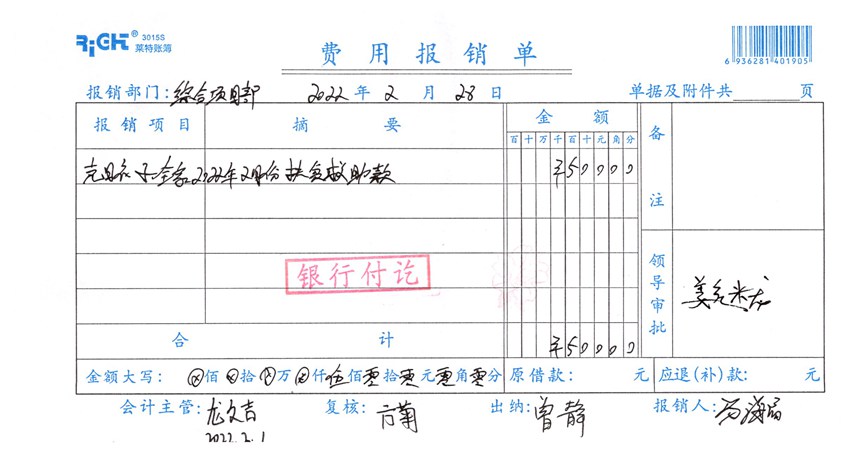 RiGHT® 3015S 莱特账簿
费用报销单
6 936281 401905
报销部门:综合项目部 2022年2月28日 单据及附件共 页
报销项目 摘要 金额 备注
百十万千百十元角分
2022年2月份扶贫救助款 ¥50000
银行付讫
领导审批
合计 ¥50000
金额大写: ⊗佰⊗拾⊗万⊗仟伍佰零拾零元零角零分 原借款: 元 应退(补)款: 元
会计主管:龙文吉 复核:方菊 出纳:曾静 报销人:
2022.2.1